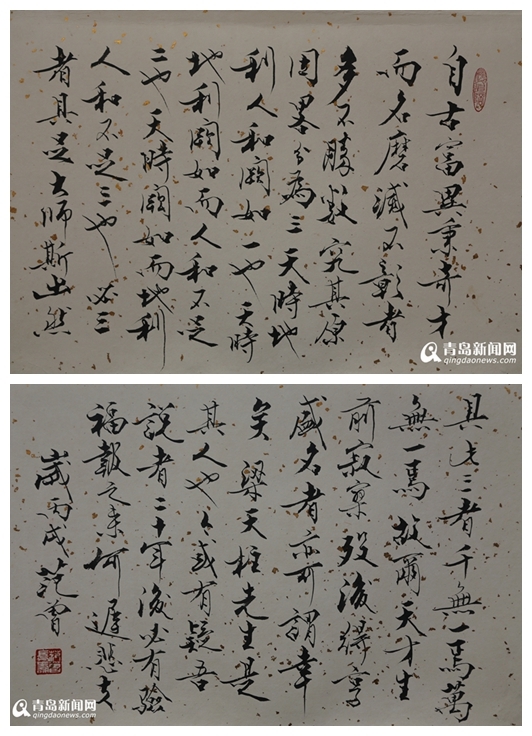 自古富異秉奇才
而名磨滅不彰者
多不勝數究其原
因畧分為三天時地
利人和闕如一也天時
地利闕如而人和不足
二也天時闕如而地利
人和不足三也必三
者具足大師斯出然
青岛新闻网
qingdaonews.com
具此三者千無一焉萬
無一焉故爾天才生
前寂寞歿後得享
盛名者亦可謂幸
矣 梁天柱先生是
其人也今或有疑吾
說者二十年後必有驗
福報之來何遲悲夫
歲丙戌 范曾
青岛新闻网
qingdaonews.com